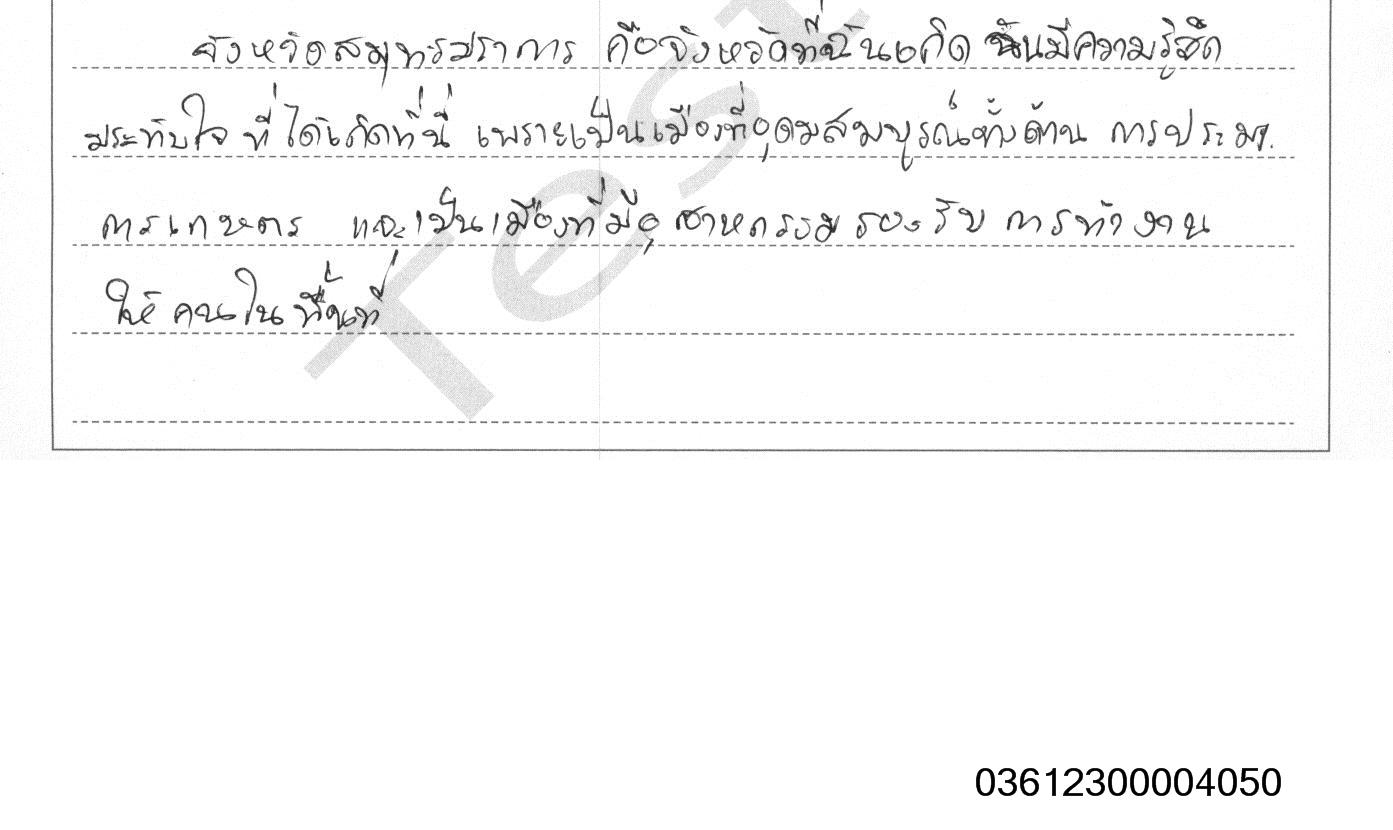 จังหวัดสมุทรปราการ คือจังหวัดที่ฉันเกิด ฉันมีความรู้สึก
ประทับใจ ที่ได้เกิดที่นี่ เพราะเป็นเมืองที่อุดมสมบูรณ์ทั้งด้าน การประมง
การเกษตร และเป็นเมืองที่มีอุตสาหกรรมรองรับ การทำงาน
ให้คนในพื้นที่
Test
03612300004050